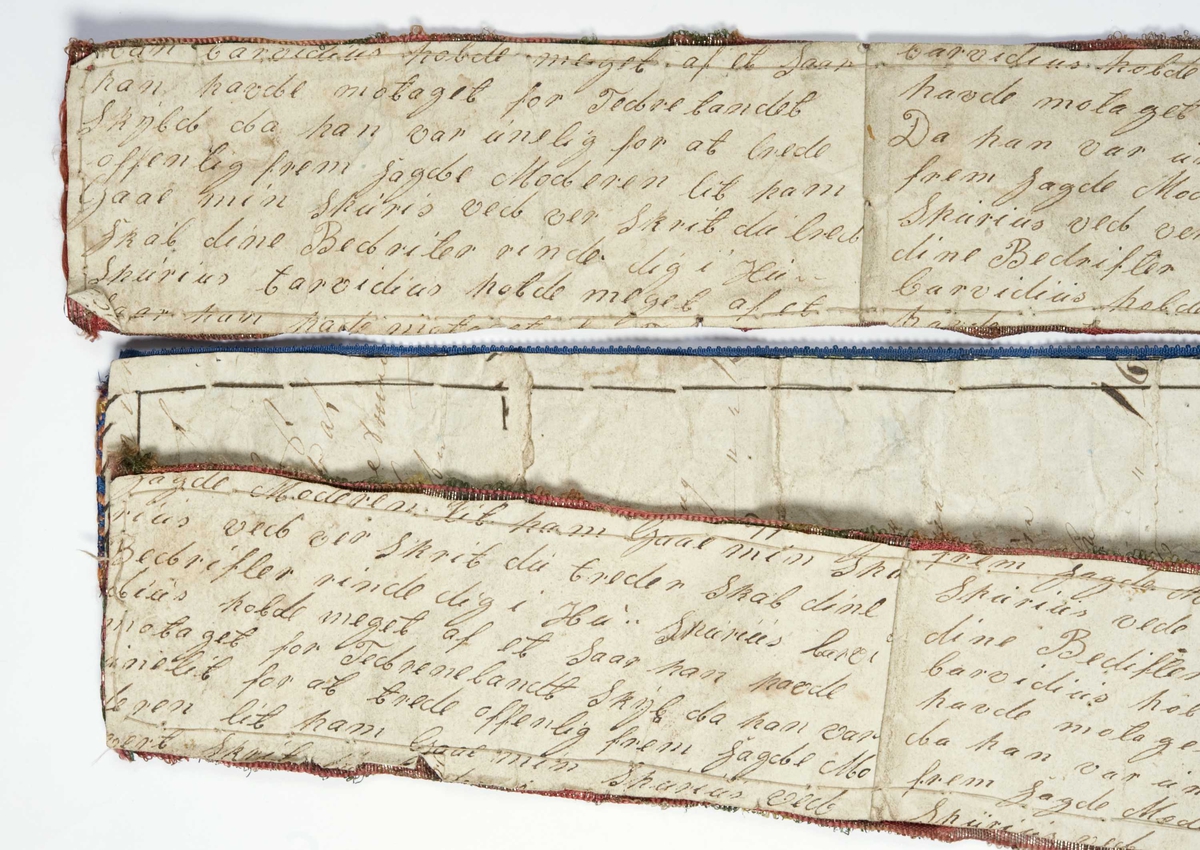 barvidius holde meget af et Saar
han havde motaget for Fedrelandet
Skÿld da han var unslig for at brede
offenlig frem Sagde Moderen lit ham
Gaae min Skuris ved ver Skrit du tred
Skab dine Bedriter rinde dig i Hu
Skurius barvidius holde meget af et
Saar han
barvidius holde
havde motaget
Da han var
frem Sagde Mod
Skurius ved ver
dine Bedrifler
barvidius holde
havde
16
Sagde Moderen lit ham Gaae min Sku
rius ved ver Skrit du treder Skab dine
Bedrifler rinde dig i Hu Skurius barvi
dius holde meget af et Saar han havde
motaget for Fedrenelandt Skÿl da han var
unslit for at trede offenlig frem Sagde Mo
deren lit ham Gaae min Skurius ved
vert Skrit
frem Sagde
Skurius ved
dine Bediflen
barvidius hol
havde motage
da han var un
frem Sagde Mod
Skurius ved